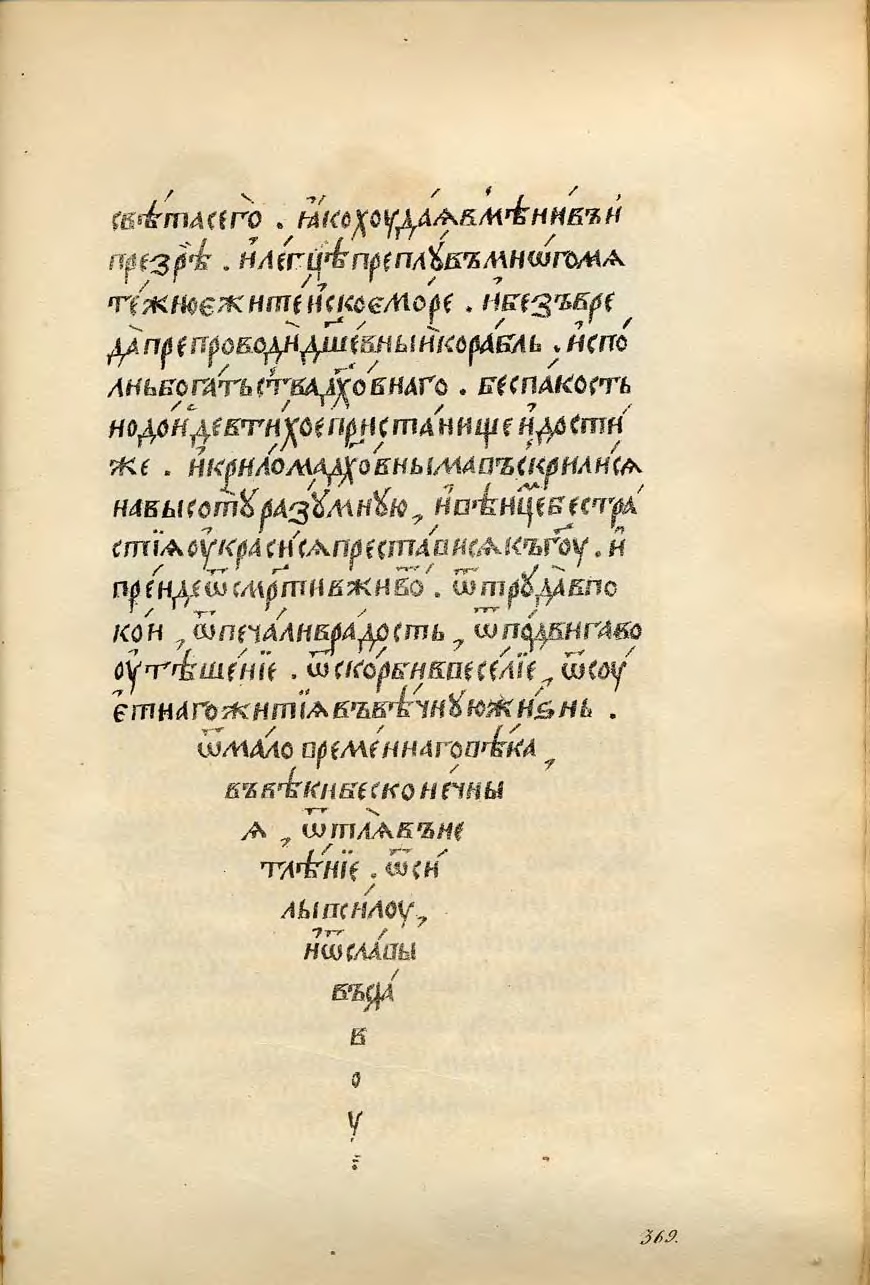 свѣта сего̀ . ꙗ҆́ко хоуда́ѧ вмѣни́въ и҆
презрѣ́ . и҆ ле́гцѣ преплꙋ́въ мнѡ́гомѧ
те́жное жите́йское мо́ре . и҆ безъ вре
да̀ препроводи́ дш҃е́вный кора́бль . и҆спо́
лнь бога́тьства дх҃о́внаго . беспа́кость
но до и҆́де в ти́хое приста́нище и҆ дости́
же . и҆ крило́ма дх҃о́вныма въскрили́сѧ
на высотꙋ̀ разꙋ́мнꙋю , и҆ вѣнце́м бестра́
стїѧ оу҆краси́сѧ преста́висѧ къ гоу҃ . и҆
пре́иде ѿ смр҃ти в живо́т . ѿ трꙋда̀ в по
ко́и , ѿ печа́ли в ра́дость , ѿ по́двига во
оу҆тѣше́нїе . ѿ ско́рби в весе́лїе , ѿ соу́
є҆тнаго житїѧ̀ въ вѣ́чнꙋю жи́ѕнь .
ѿ маловреме́ннаго вѣ́ка ,
въ вѣ́ки бесконе́чны
ѧ , ѿ тлѧ̀ въ не
тлѣ́нїе . ѿ си́
лы в си́лоу ,
и҆ ѿ сла́вы
въ сла́
в
о
у
:
369.